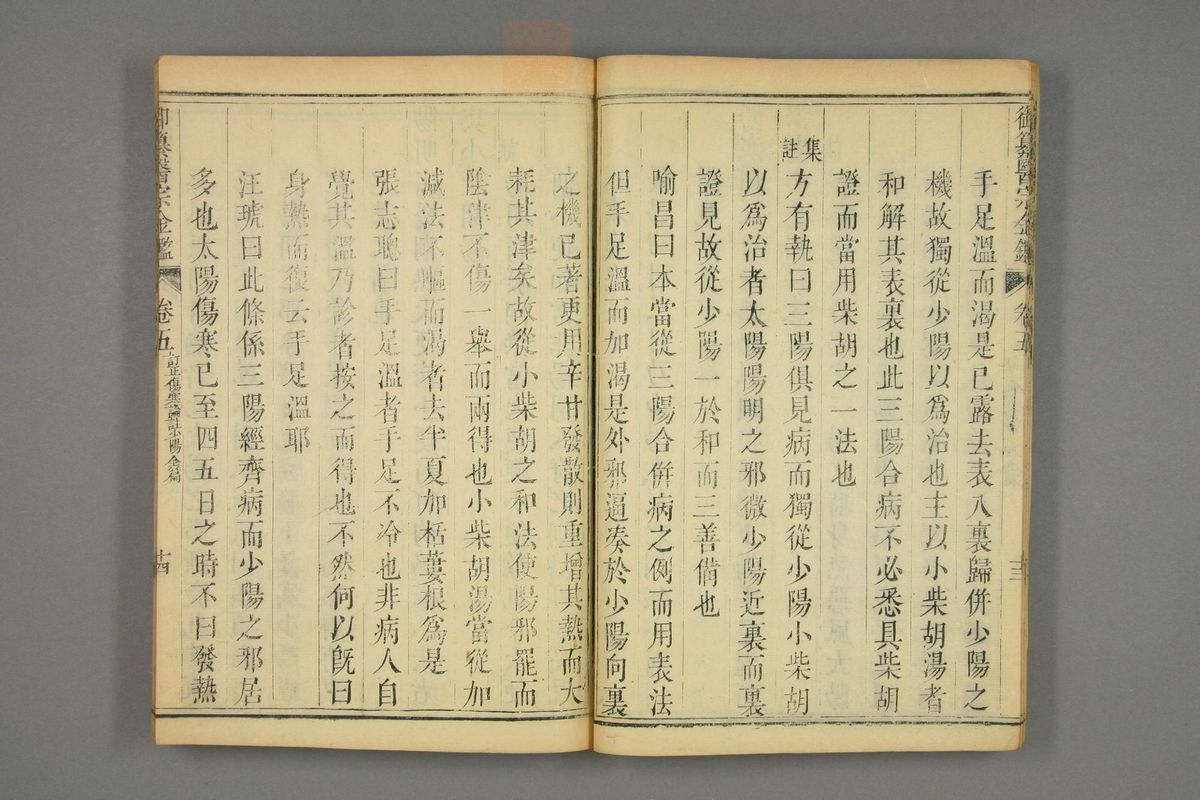 御纂醫宗金鑑
卷五
十三
手足溫而渴是已露去表入裏歸併少陽之
機故獨從少陽以為治也主以小柴胡湯者
和解其表裏也此三陽合病不必悉具柴胡
證而當用柴胡之一法也
集註
方有執曰三陽俱見病而獨從少陽小柴胡
以為治者太陽陽明之邪微少陽近裏而裏
證見故從少陽一於和而三善備也
喻昌曰本當從三陽合併病之例而用表法
但手足溫而加渴是外邪逼凑於少陽向裏
之機已著更用辛甘發散則重增其熱而大
耗其津矣故從小柴胡之和法使陽邪罷而
陰津不傷一舉而兩得也小柴胡湯當從加
減法不嘔而渴者去半夏加栝蔞根為是
張志聰曰手足溫者手足不冷也非病人自
覺其溫乃診者按之而得也不然何以旣曰
身熱而復云手足溫耶
汪琥曰此條係三陽經齊病而少陽之邪居
多也太陽傷寒已至四五日之時不曰發熱
御纂醫宗金鑑
卷五
訂正傷寒論註少陽全篇
十四